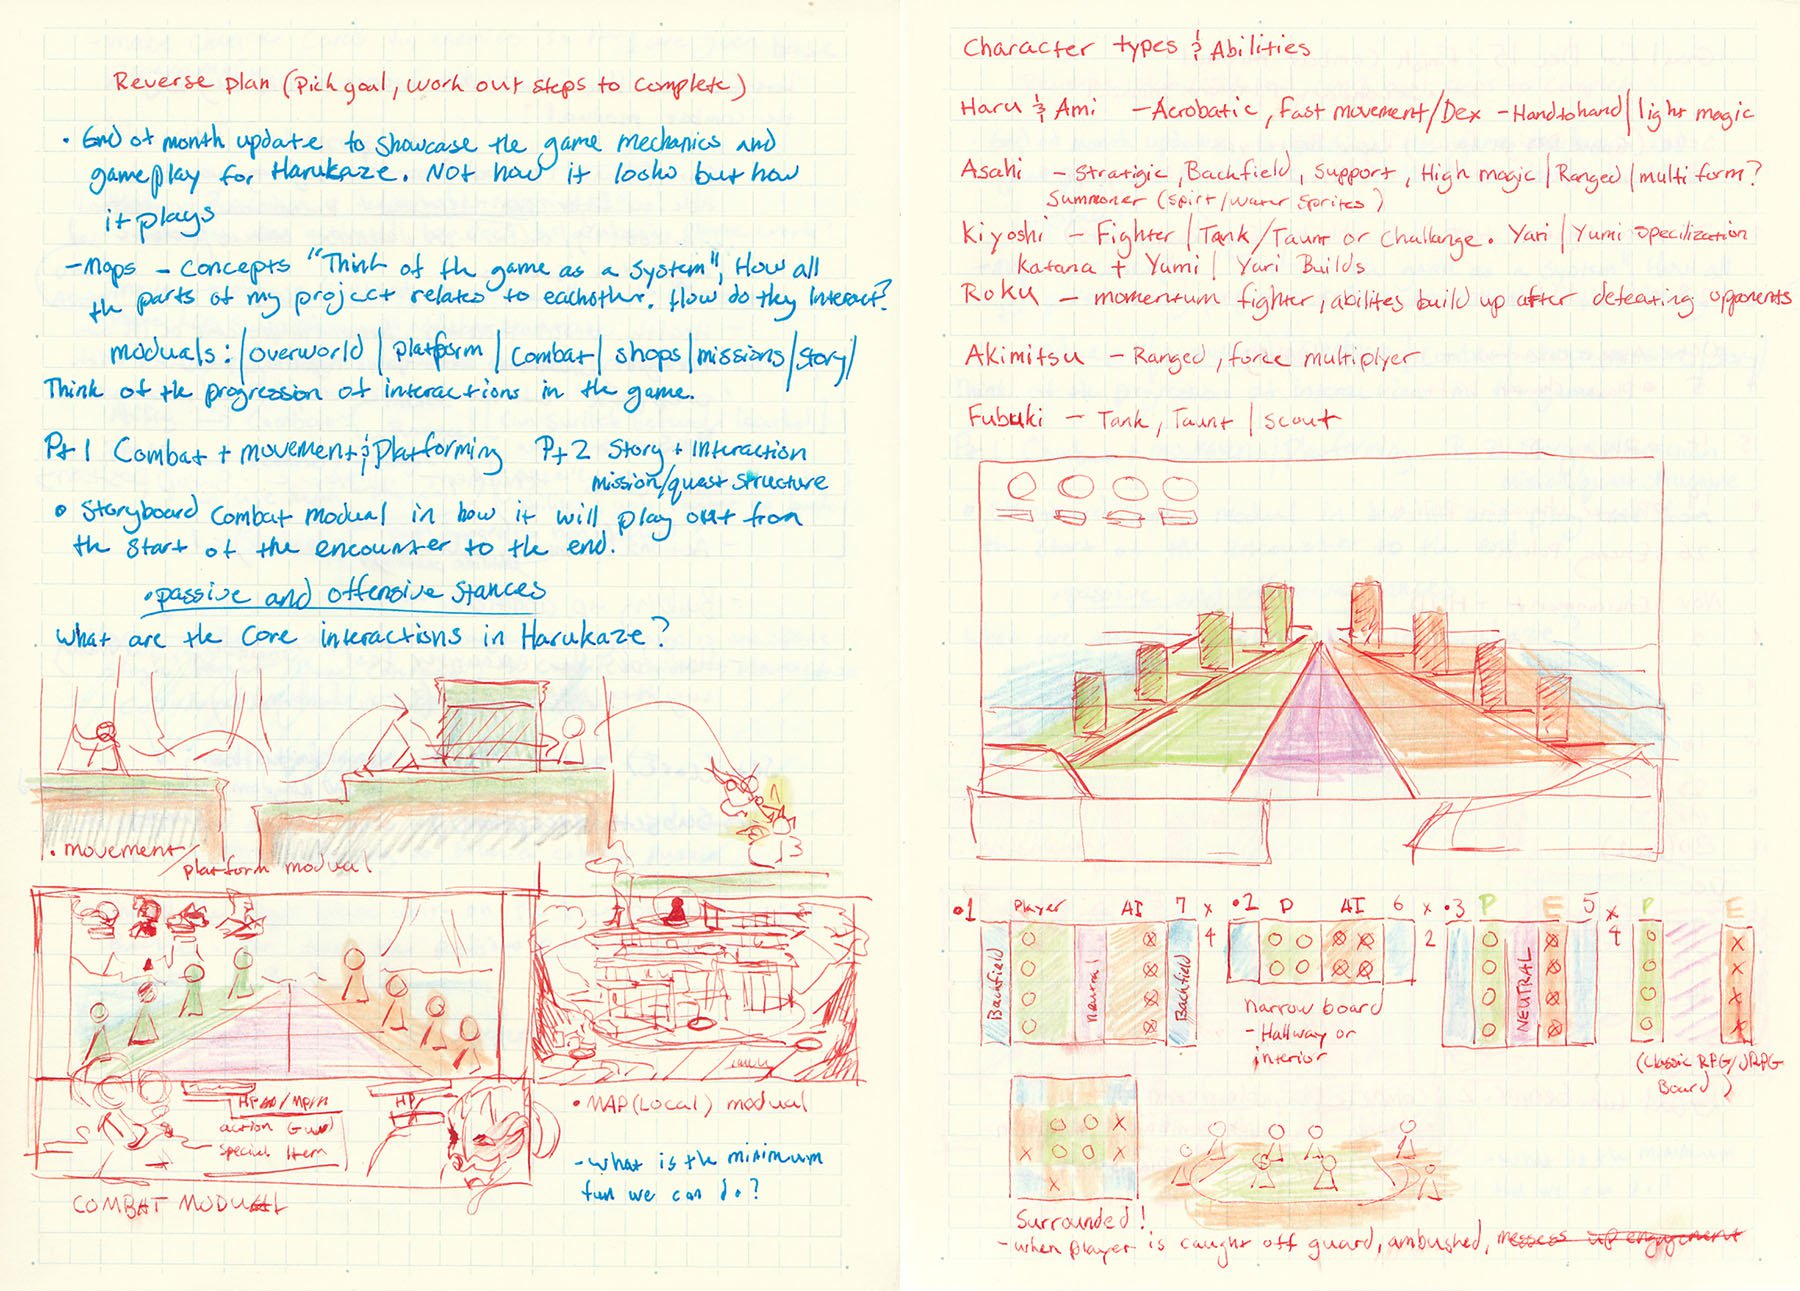 Reverse plan (Pick goal, work out steps to complete)
• End of month update to showcase the game mechanics and
gameplay for Harukaze. Not how it looks but how
it plays
- Maps - concepts "Think of the game as a system", How all
the parts of my project relates to eachother. How do they Interact?
moduals: | overworld | platform | combat | shops | missions | story /
Think of the progression of interactions in the game.
Pt 1 Combat + movement & platforming Pt 2 Story + Interaction
mission/quest structure
• Storyboard combat modual in how it will play out from
the start of the encounter to the end.
• passive and offensive stances
What are the core interactions in Harukaze?
• movement / platform modual
HP / MP
action
special Item
HP /
COMBAT MODUAL
• MAP (Local) modual
- What is the minimum
fun we can do?
Character types & Abilities
Haru & Ami - Acrobatic, fast movement/Dex - Handtohand | light magic
Asahi - Stratigic, Backfield, support, High magic | Ranged | multi form?
Summoner (Spirt/water sprites)
Kiyoshi - Fighter | Tank/Taunt or challange. Yari | Yumi specilization
Katana + Yumi | Yari Builds
Roku - momentum fighter, abilites build up after defeating opponents
Akimitsu - Ranged, force multiplyer
Fubuki - Tank, Taunt | scout
•1 Player AI 7 x 4
Backfield neutral Backfield
•2 P AI 6 x 2
narrow board
- Hallway or
interior
•3 P E 5 x 4
NEUTRAL
P E
(Classic RPG/JRPG
Board)
Surrounded!
- when player is caught off guard, ambushed, messess up engagement